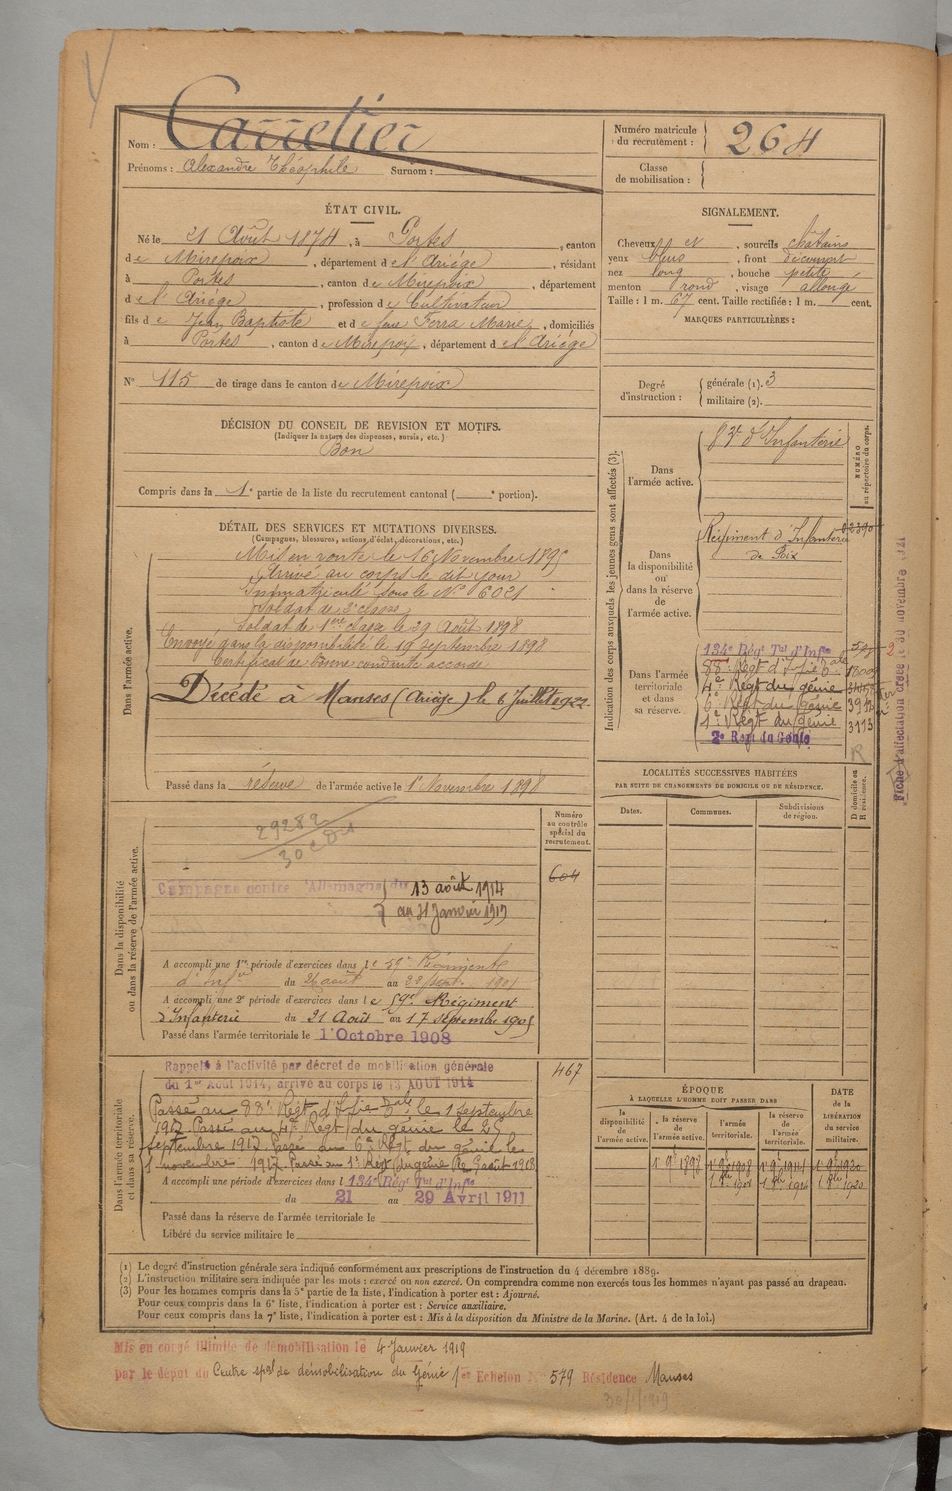 Nom : Carretier
Prénoms : Alexandre Théophile Surnom :
Numéro matricule du recrutement : 264
Classe de mobilisation :
ÉTAT CIVIL.
Né le 21 Août 1874, à Portes, canton
de Mirepoix, département de l'Ariège, résidant
à Portes, canton de Mirepoix, département
de l'Ariège, profession de Cultivateur
fils de Jean Baptiste et de feue Ferra Marie, domiciliés
à Portes, canton de Mirepoix, département de l'Ariège
N° 115 de tirage dans le canton de Mirepoix
SIGNALEMENT.
Cheveux et, sourcils châtains
yeux bleus, front découvert
nez long, bouche petite
menton rond, visage allongé
Taille : 1 m. 67 cent. Taille rectifiée : 1 m. cent.
MARQUES PARTICULIÈRES :
Degré d'instruction : générale (1). 3
militaire (2).
DÉCISION DU CONSEIL DE REVISION ET MOTIFS.
(Indiquer la nature des dispenses, sursis, etc.)
Bon
Compris dans la 1e partie de la liste du recrutement cantonal ( e portion).
DÉTAIL DES SERVICES ET MUTATIONS DIVERSES.
(Campagnes, blessures, actions d'éclat, décorations, etc.)
Dans l'armée active.
Mis en route le 16 Novembre 1895
Arrivé au corps le dit jour
Immatriculé sous le N° 6021
Soldat de 2e classe
Soldat de 1ère classe le 29 Août 1898
Envoyé dans la disponibilité le 19 septembre 1898
Certificat de bonne conduite accordé
Décédé à Manses (Ariège) le 6 Juillet 1922
Passé dans la réserve de l'armée active le 1er Novembre 1898
Indication des corps auxquels les jeunes gens sont affectés (3).
NUMÉRO au répertoire du corps.
Dans l'armée active.
d'Infanterie
Dans la disponibilité ou dans la réserve de l'armée active.
Régiment d'Infanterie
de Foix
Dans l'armée territoriale et dans sa réserve.
134e Régt Tal d'Infie
88e Régt d'Infie Tale
4e Régt du génie
6e Régt du génie
1er Régt du génie 3113
2e Régt du Génie
R
Fiche d'affectation créée le 30 novembre 1921
LOCALITÉS SUCCESSIVES HABITÉES
PAR SUITE DE CHANGEMENTS DE DOMICILE OU DE RÉSIDENCE.
Dates. Communes. Subdivisions de région. D domicile ou R résidence.
Dans la disponibilité ou dans la réserve de l'armée active.
Numéro au contrôle spécial du recrutement.
29282
604
Campagne contre l'Allemagne du 13 août 1914
au 31 Janvier 1919
A accompli une 1re période d'exercices dans le 59e Régiment
d'Infie du 26 août au 22 sept. 1901
A accompli une 2e période d'exercices dans le 59e Régiment
d'Infanterie du 21 Août au 17 septembre 1905
Passé dans l'armée territoriale le 1er Octobre 1908
Dans l'armée territoriale et dans sa réserve.
467
Rappelé à l'activité par décret de mobilisation générale
du 1er Août 1914, arrivé au corps le 13 AOUT 1914
Passé au 88e Régt d'Infie Tale le 1 septembre
1917. Passé au 4e Régt du génie le 25
septembre 1917. Passé au 6e Régt du génie le
1 novembre 1917. Passé au 1er Régt du génie le 9 août 1918
A accompli une période d'exercices dans l 134e Régt Tal d'Infie
du 21 au 29 Avril 1911
Passé dans la réserve de l'armée territoriale le
Libéré du service militaire le
ÉPOQUE
À LAQUELLE L'HOMME DOIT PASSER DANS
la disponibilité de l'armée active. la réserve de l'armée active. l'armée territoriale. la réserve de l'armée territoriale.
DATE de la LIBÉRATION du service militaire.
1er 9bre 1898 1er 9bre 1908 1er 9bre 1914 1er 9bre 1920
(1) Le degré d'instruction générale sera indiqué conformément aux prescriptions de l'instruction du 4 décembre 1889.
(2) L'instruction militaire sera indiquée par les mots : exercé ou non exercé. On comprendra comme non exercés tous les hommes n'ayant pas passé au drapeau.
(3) Pour les hommes compris dans la 5e partie de la liste, l'indication à porter est : Ajourné.
Pour ceux compris dans la 6e liste, l'indication à porter est : Service auxiliaire.
Pour ceux compris dans la 7e liste, l'indication à porter est : Mis à la disposition du Ministre de la Marine. (Art. 4 de la loi.)
Mis en congé illimité de démobilisation le 4 Janvier 1919
par le dépôt du Centre spal de démobilisation du Génie 1er Echelon N° 579 Résidence Manses
30/1/1919